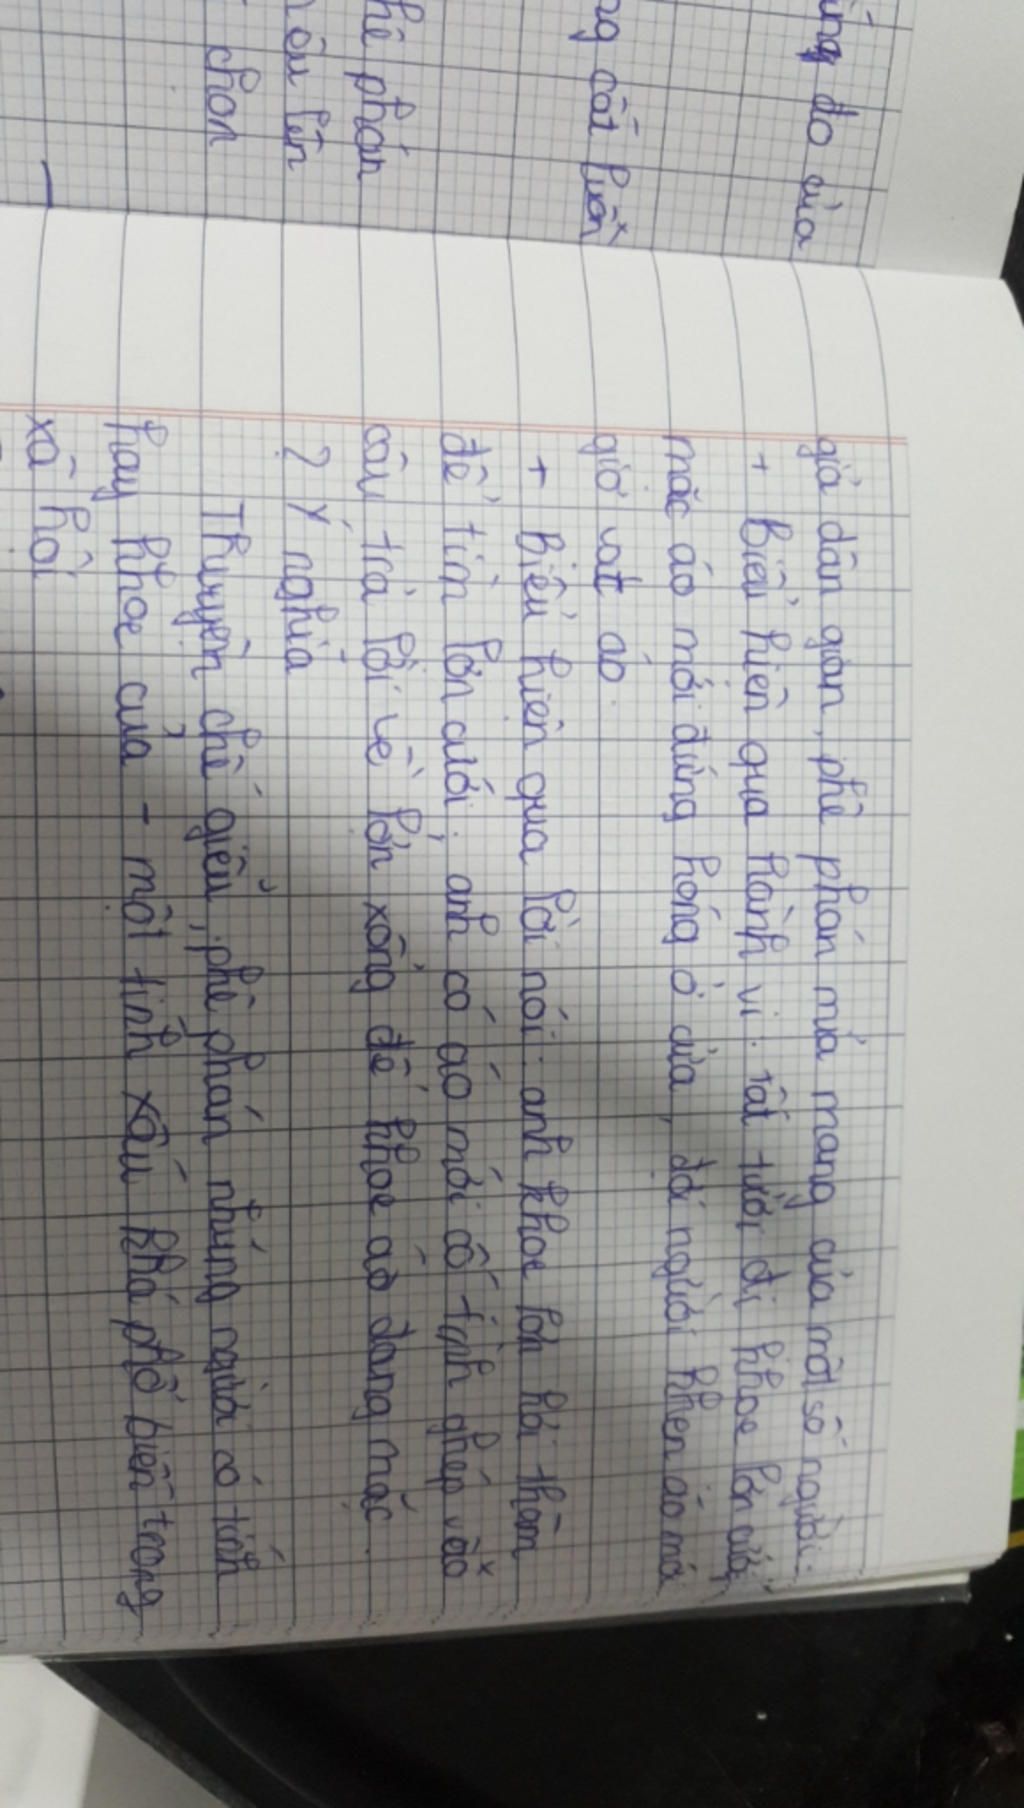 ng do của
ng cắt luôn
hê phán
chọn
giả dân gian, phê phán mỉa mang của một số người:
+ Biểu hiện qua hành vi: tất tưởi đi khoe lợn cưới,
mặc áo mới đứng hóng ở cửa, đợi người khen áo mới
giơ vạt áo.
+ Biểu hiện qua lời nói: anh khoe lợn hỏi thăm
để tìm lợn cưới, anh có áo mới cố tình ghép vào
câu trả lời về lợn xổng để khoe áo đang mặc.
2 Ý nghĩa
Truyện chế giễu, phê phán những người có tính
hay khoe của - một tính xấu khá phổ biến trong
xã hội